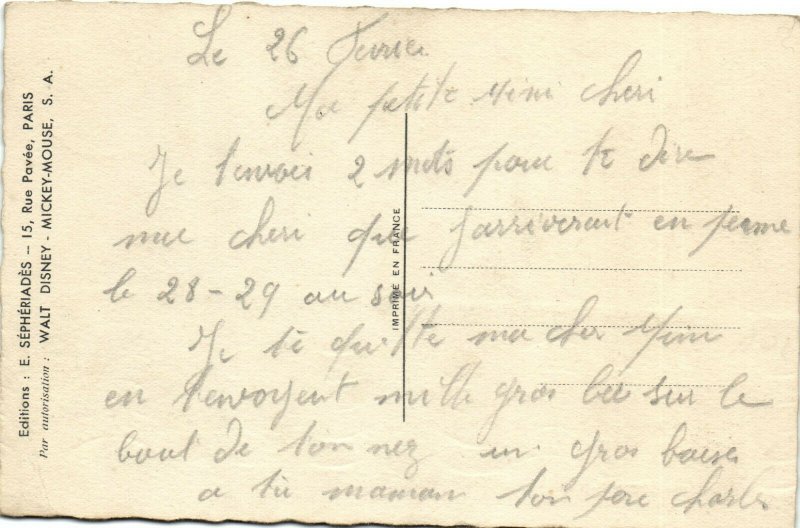 Le 26 Fevrie
Ma petite Mimi cheri
Je t'envoi 2 mots pour te dire
ma cheri que j'arriverait en perme
le 28-29 au soir
Je te quitte ma cher Mimi
en t'envoyent mille gros sur le
bout de ton nez un gros baise
a ta maman ton pere Charles
Editions : E. SÉPHÉRIADÈS -- 15, Rue Pavée, PARIS
Par autorisation : WALT DISNEY - MICKEY-MOUSE, S. A.
IMPRIMÉ EN FRANCE